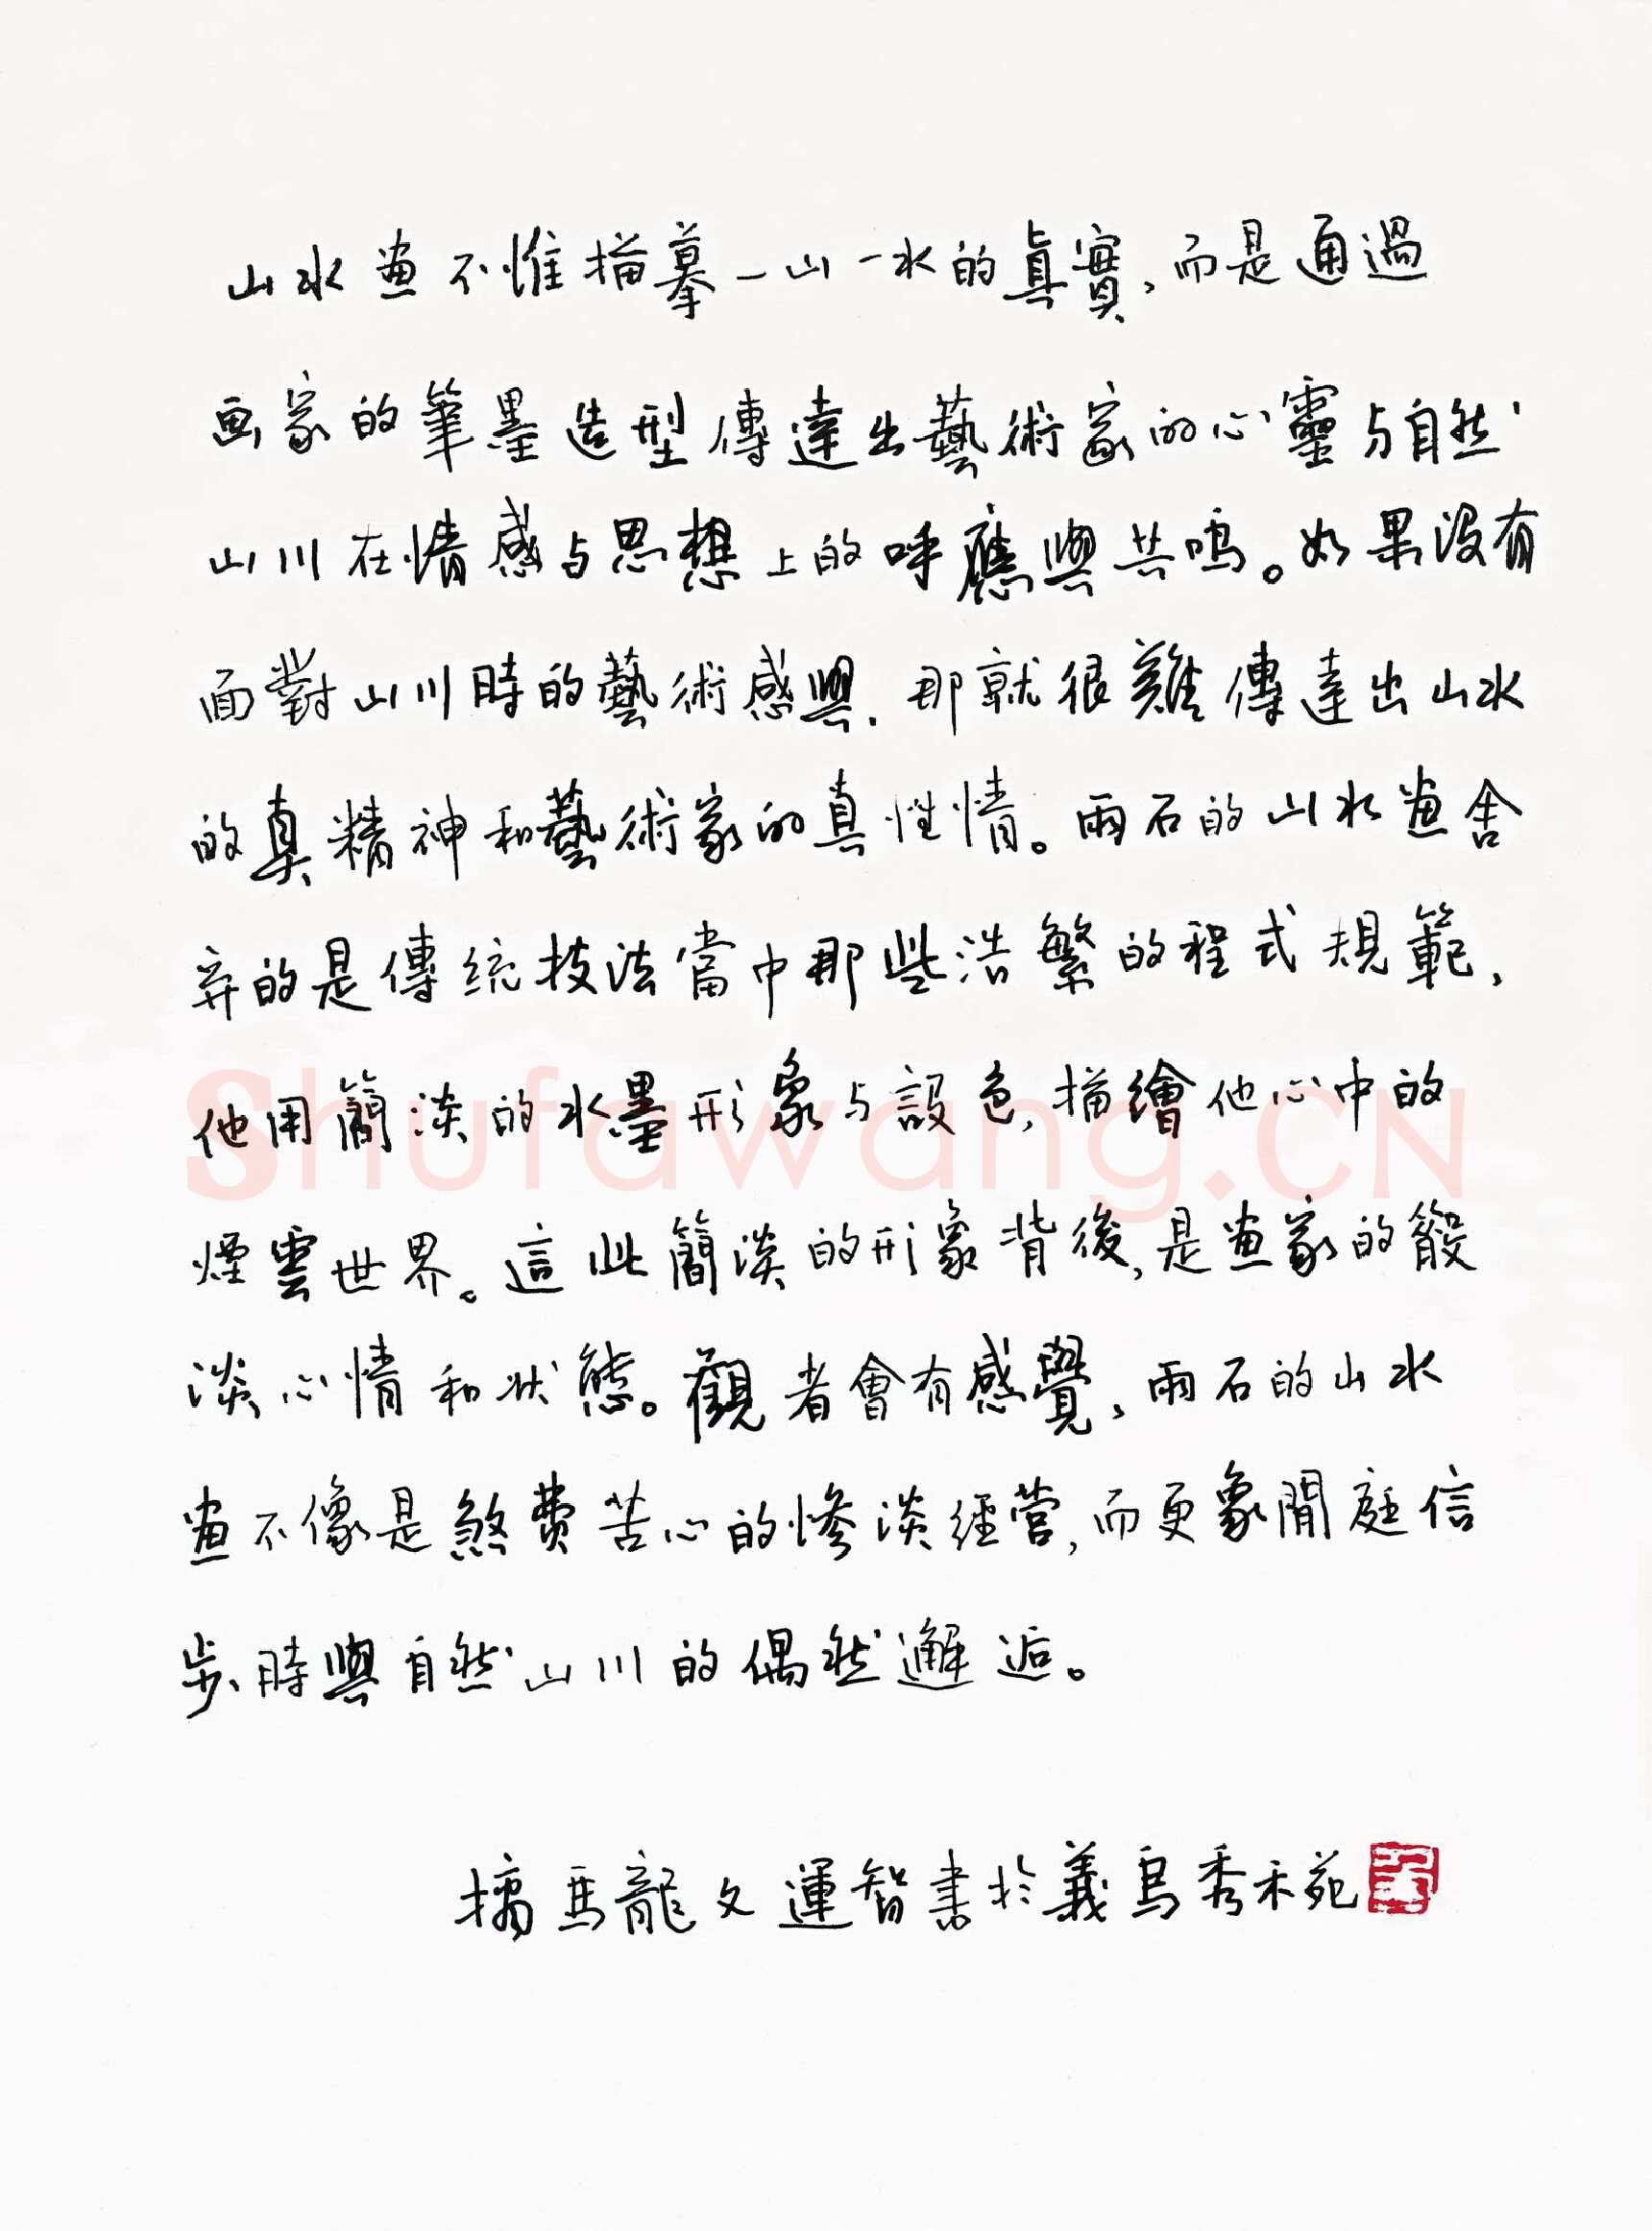 山水畫不惟描摹一山一水的真實，而是通過
画家的筆墨造型傳達出藝術家的心靈与自然
山川在情感与思想上的呼應與共鸣。如果没有
面對山川時的藝術感興，那就很難傳達出山水
的真精神和藝術家的真性情。雨石的山水畫舍
弃的是傳統技法當中那些浩繁的程式規範，
他用簡淡的水墨形象与設色，描繪他心中的
煙雲世界。這些簡淡的形象背後，是畫家的
淡心情和狀態。觀者會有感覺，雨石的山水
畫不像是煞費苦心的慘淡經營，而更象閒庭信
步時與自然山川的偶然邂逅。
摘馬龍文運智書於義烏秀禾苑
Shufawang.CN